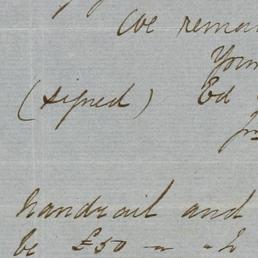 We remai
You
(signed) Ed
handrail and
be £50